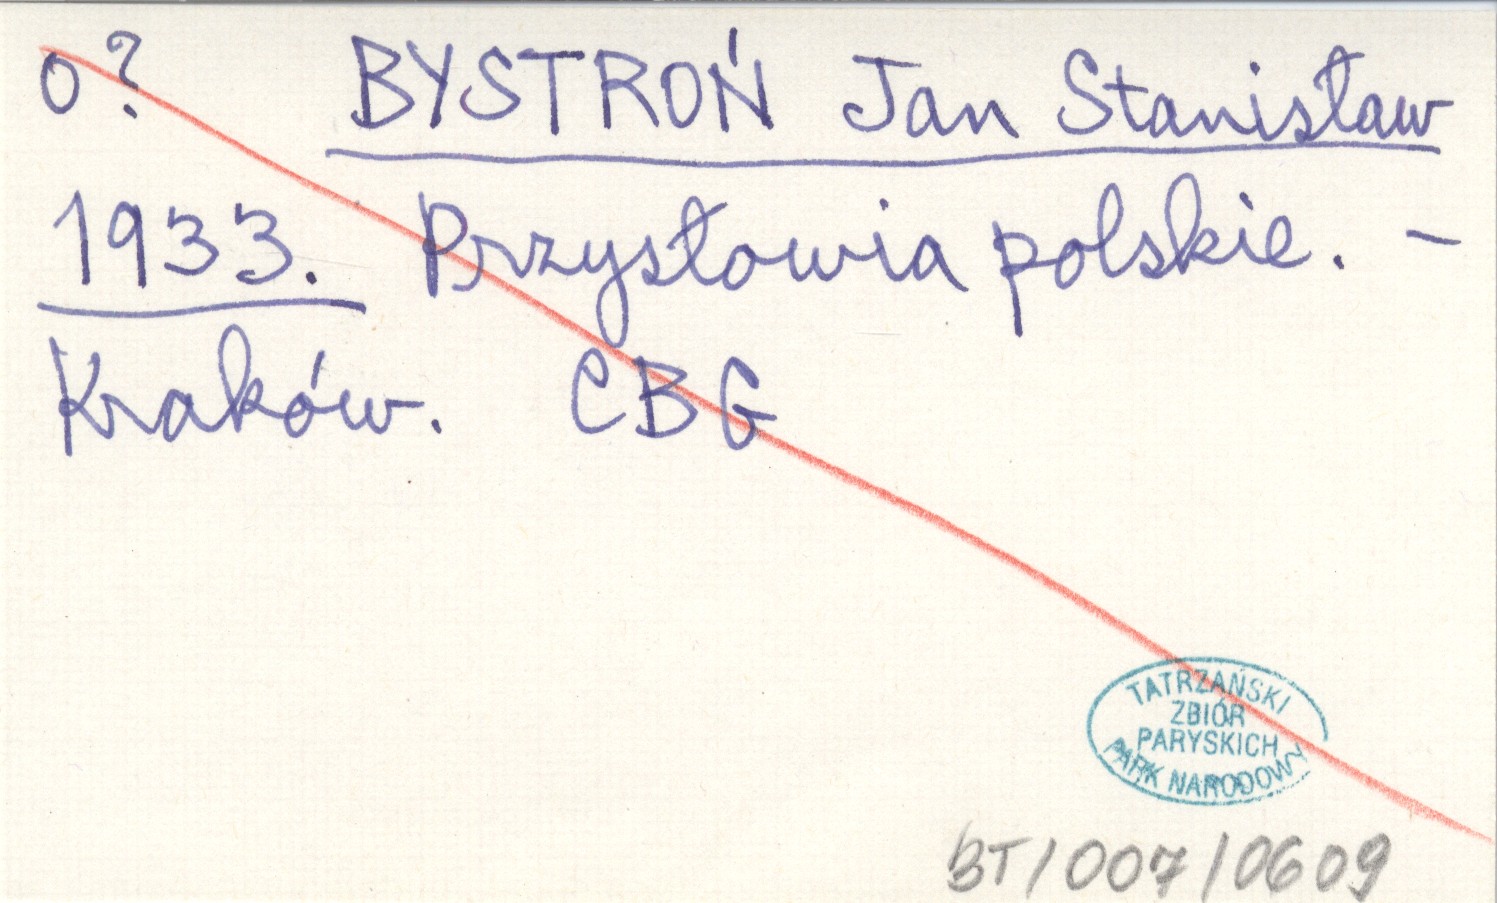 o? BYSTROŃ Jan Stanisław
1933. Przysłowia polskie. –
Kraków. CBG
TATRZAŃSKI
ZBIÓR
PARYSKICH
PARK NARODOWY
BT/007/0609